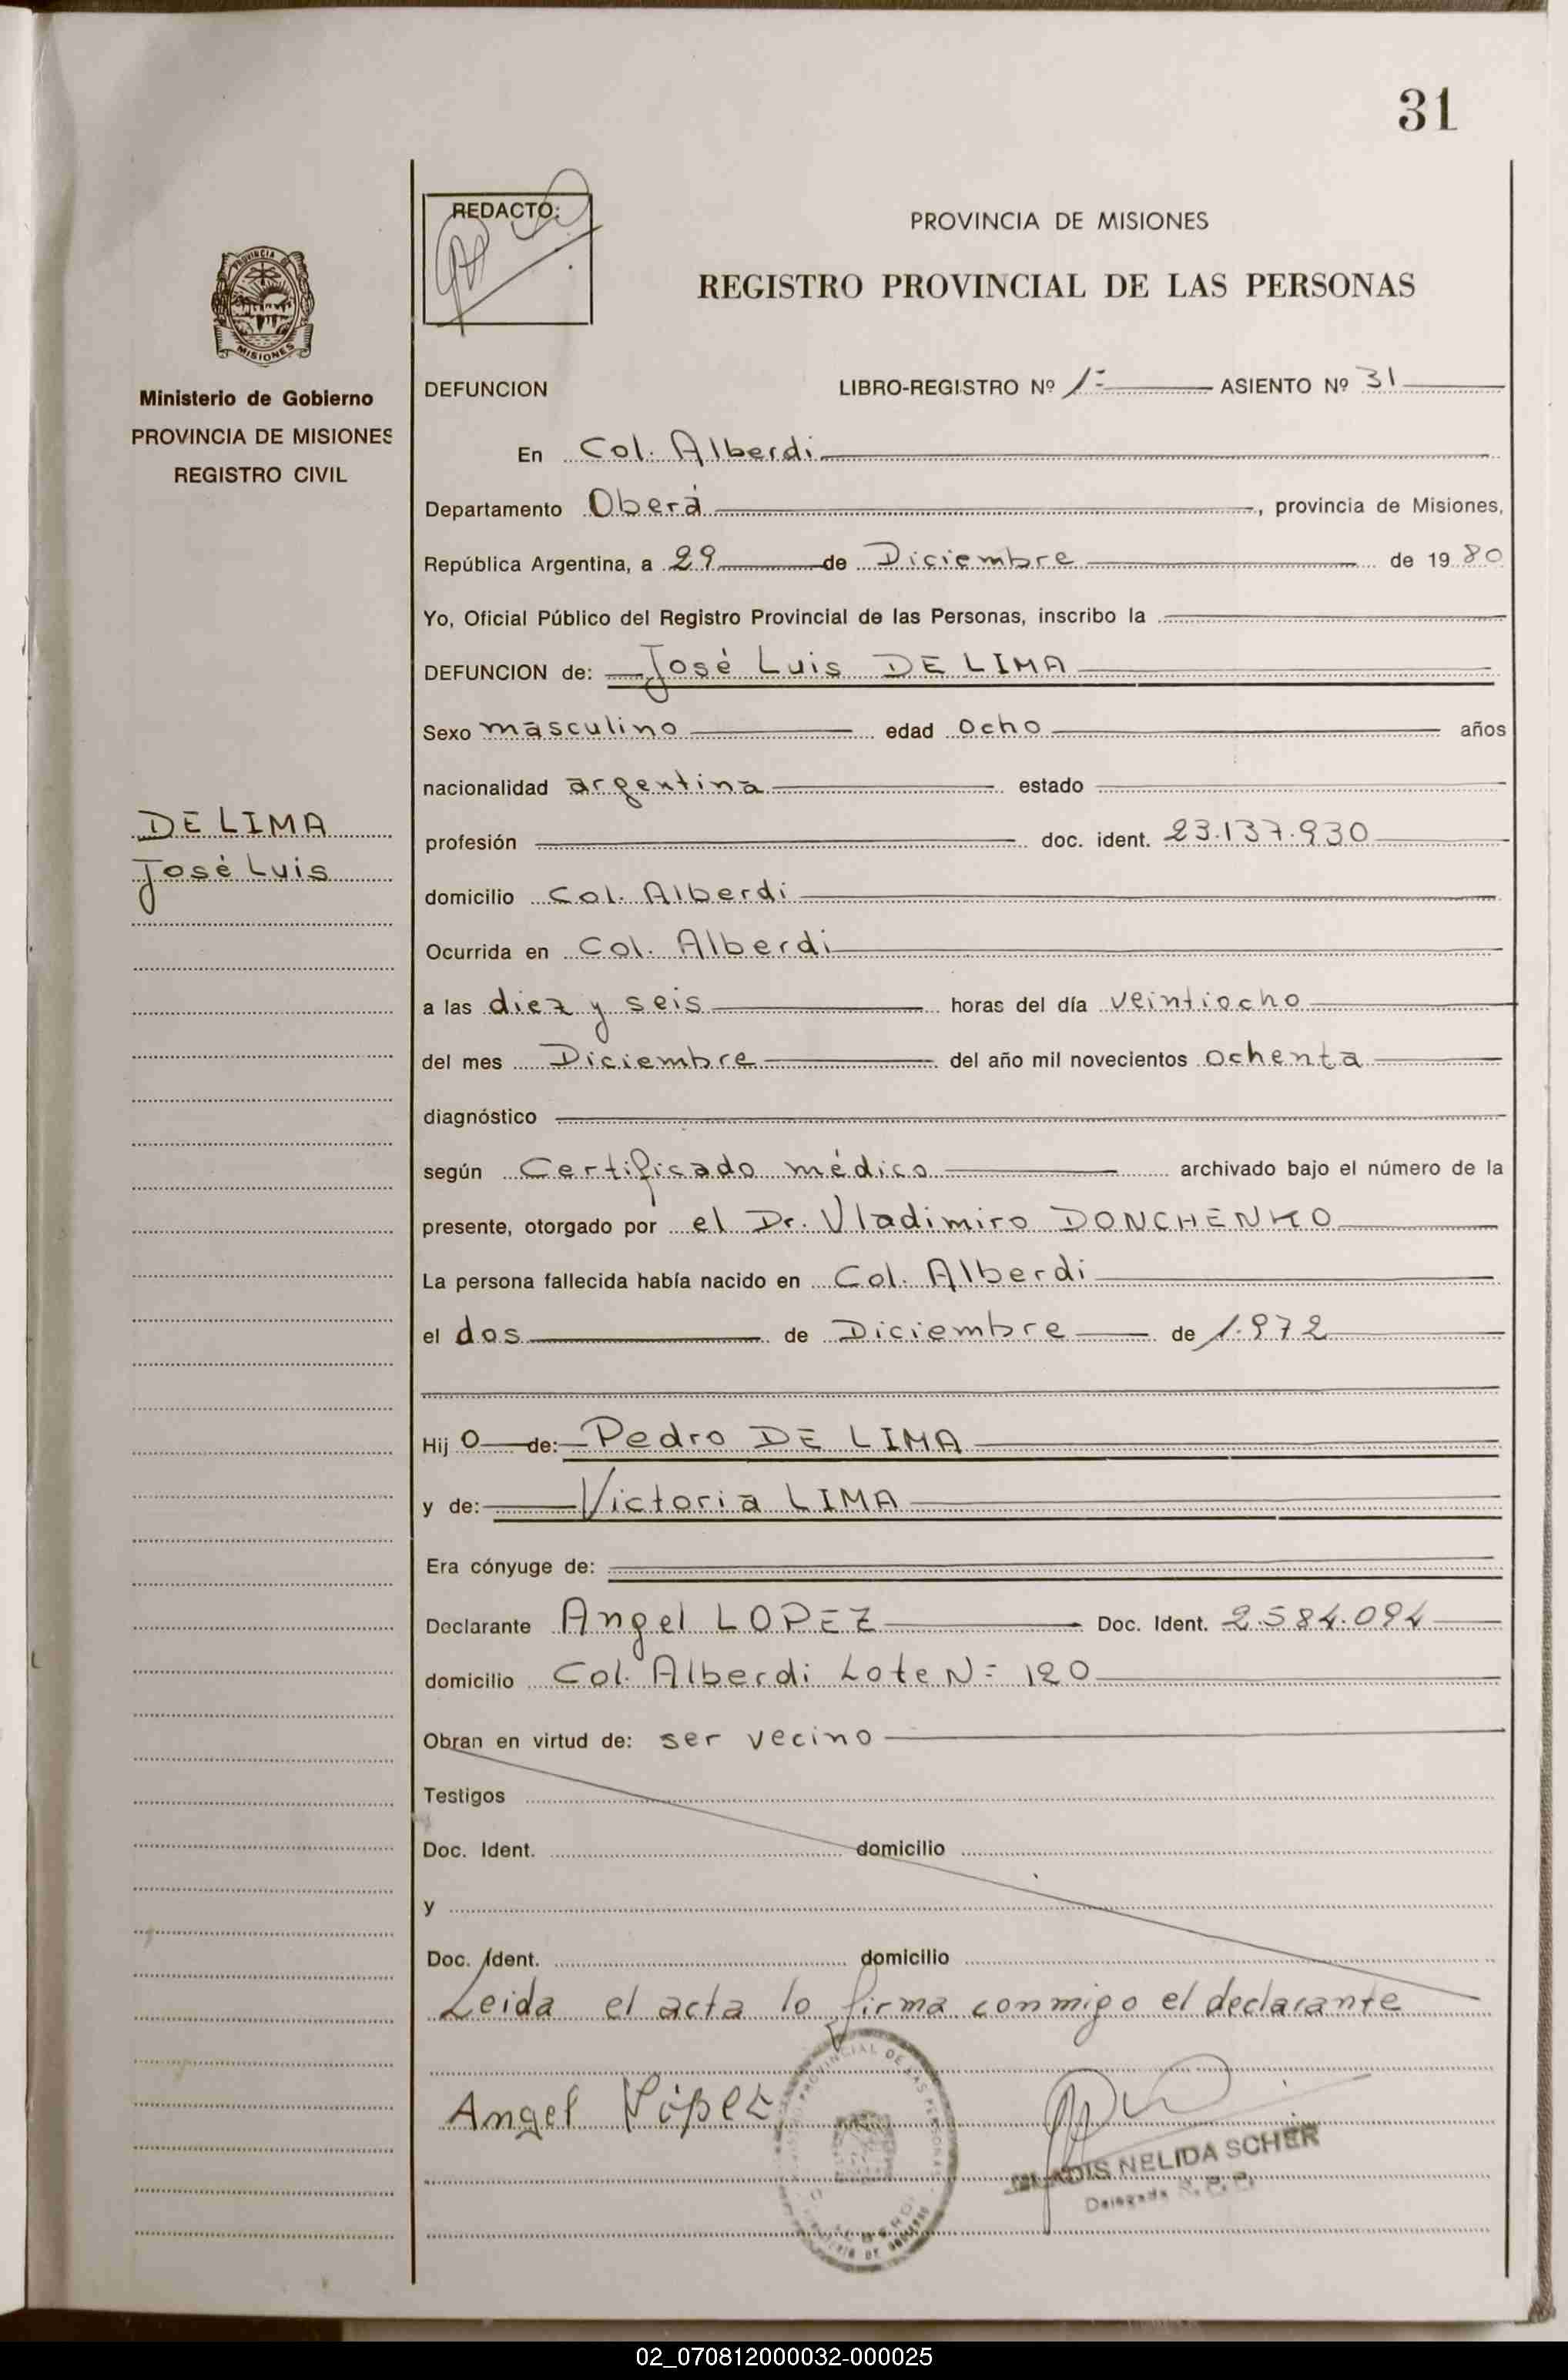 31
REDACTO:
PROVINCIA DE MISIONES
REGISTRO PROVINCIAL DE LAS PERSONAS
MISIONES
Ministerio de Gobierno
PROVINCIA DE MISIONES
REGISTRO CIVIL
DEFUNCION LIBRO-REGISTRO Nº 1= ASIENTO Nº 31
En Col. Alberdi
Departamento Oberá, provincia de Misiones,
República Argentina, a 29 de Diciembre de 1980
Yo, Oficial Público del Registro Provincial de las Personas, inscribo la
DEFUNCION de: José Luis DE LIMA
Sexo masculino edad ocho años
nacionalidad argentina estado
DE LIMA
José Luis
profesión doc. ident. 23.137.930
domicilio Col. Alberdi
Ocurrida en Col. Alberdi
a las diez y seis horas del día veintiocho
del mes Diciembre del año mil novecientos ochenta
diagnóstico
según Certificado médico archivado bajo el número de la
presente, otorgado por el Dr. Vladimiro DONCHENKO
La persona fallecida había nacido en Col. Alberdi
el dos de Diciembre de 1.972
Hijo de: Pedro DE LIMA
y de: Victoria LIMA
Era cónyuge de:
Declarante Angel LOPEZ Doc. Ident. 2.584.094
domicilio Col. Alberdi Lote N= 120
Obran en virtud de: ser vecino
Testigos
Doc. Ident. domicilio
y
Doc. Ident. domicilio
Leida el acta lo firma conmigo el declarante
Angel López
GLADIS NELIDA SCHER
Delegada
02_070812000032-000025